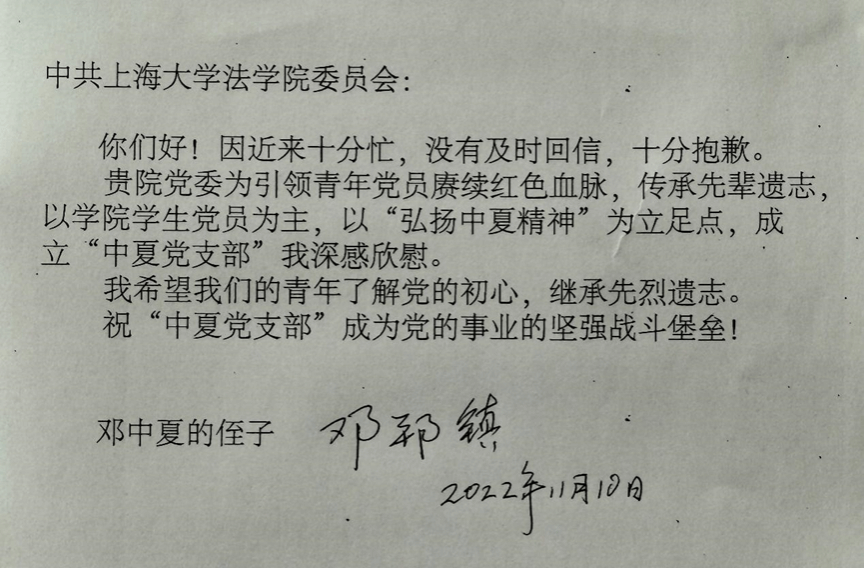 中共上海大学法学院委员会：
你们好！因近来十分忙，没有及时回信，十分抱歉。
贵院党委为引领青年党员赓续红色血脉，传承先辈遗志，
以学院学生党员为主，以“弘扬中夏精神”为立足点，成
立“中夏党支部”我深感欣慰。
我希望我们的青年了解党的初心，继承先烈遗志。
祝“中夏党支部”成为党的事业的坚强战斗堡垒！
邓中夏的侄子 邓邦镇
2022年11月10日